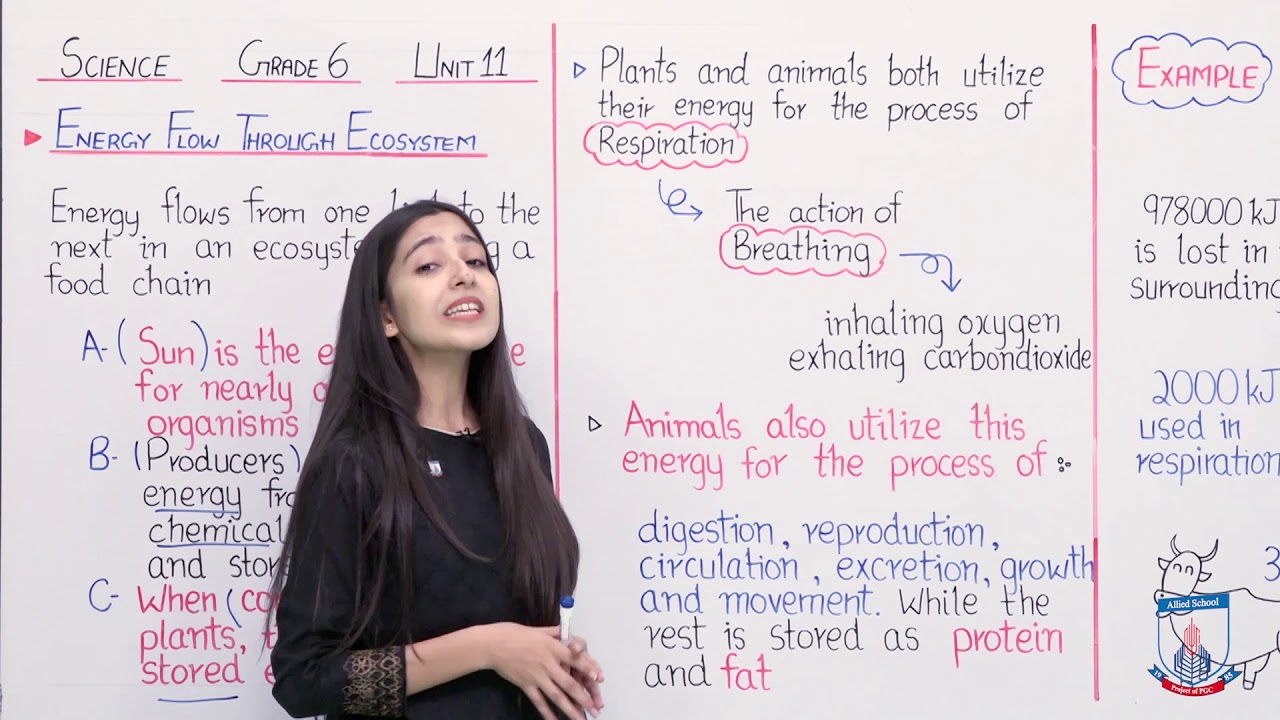 SCIENCE GRADE 6 UNIT 11
ENERGY FLOW THROUGH ECOSYSTEM
Energy flows from one to the
next in an a
food chain
A- (Sun) is the
for nearly
organisms
B- (Producers)
energy
chemical
and
C- When
plants,
stored
Plants and animals both utilize
their energy for the process of
Respiration
The action of
Breathing
inhaling oxygen
exhaling carbondioxide
Animals also utilize this
energy for the process of :-
digestion, reproduction,
circulation, excretion, growth
and movement. While the
rest is stored as protein
and fat
EXAMPLE
978000 kJ
is lost in
surrounding
2000 kJ
used in
respiration
3
Allied School
19 85
Project of PGC